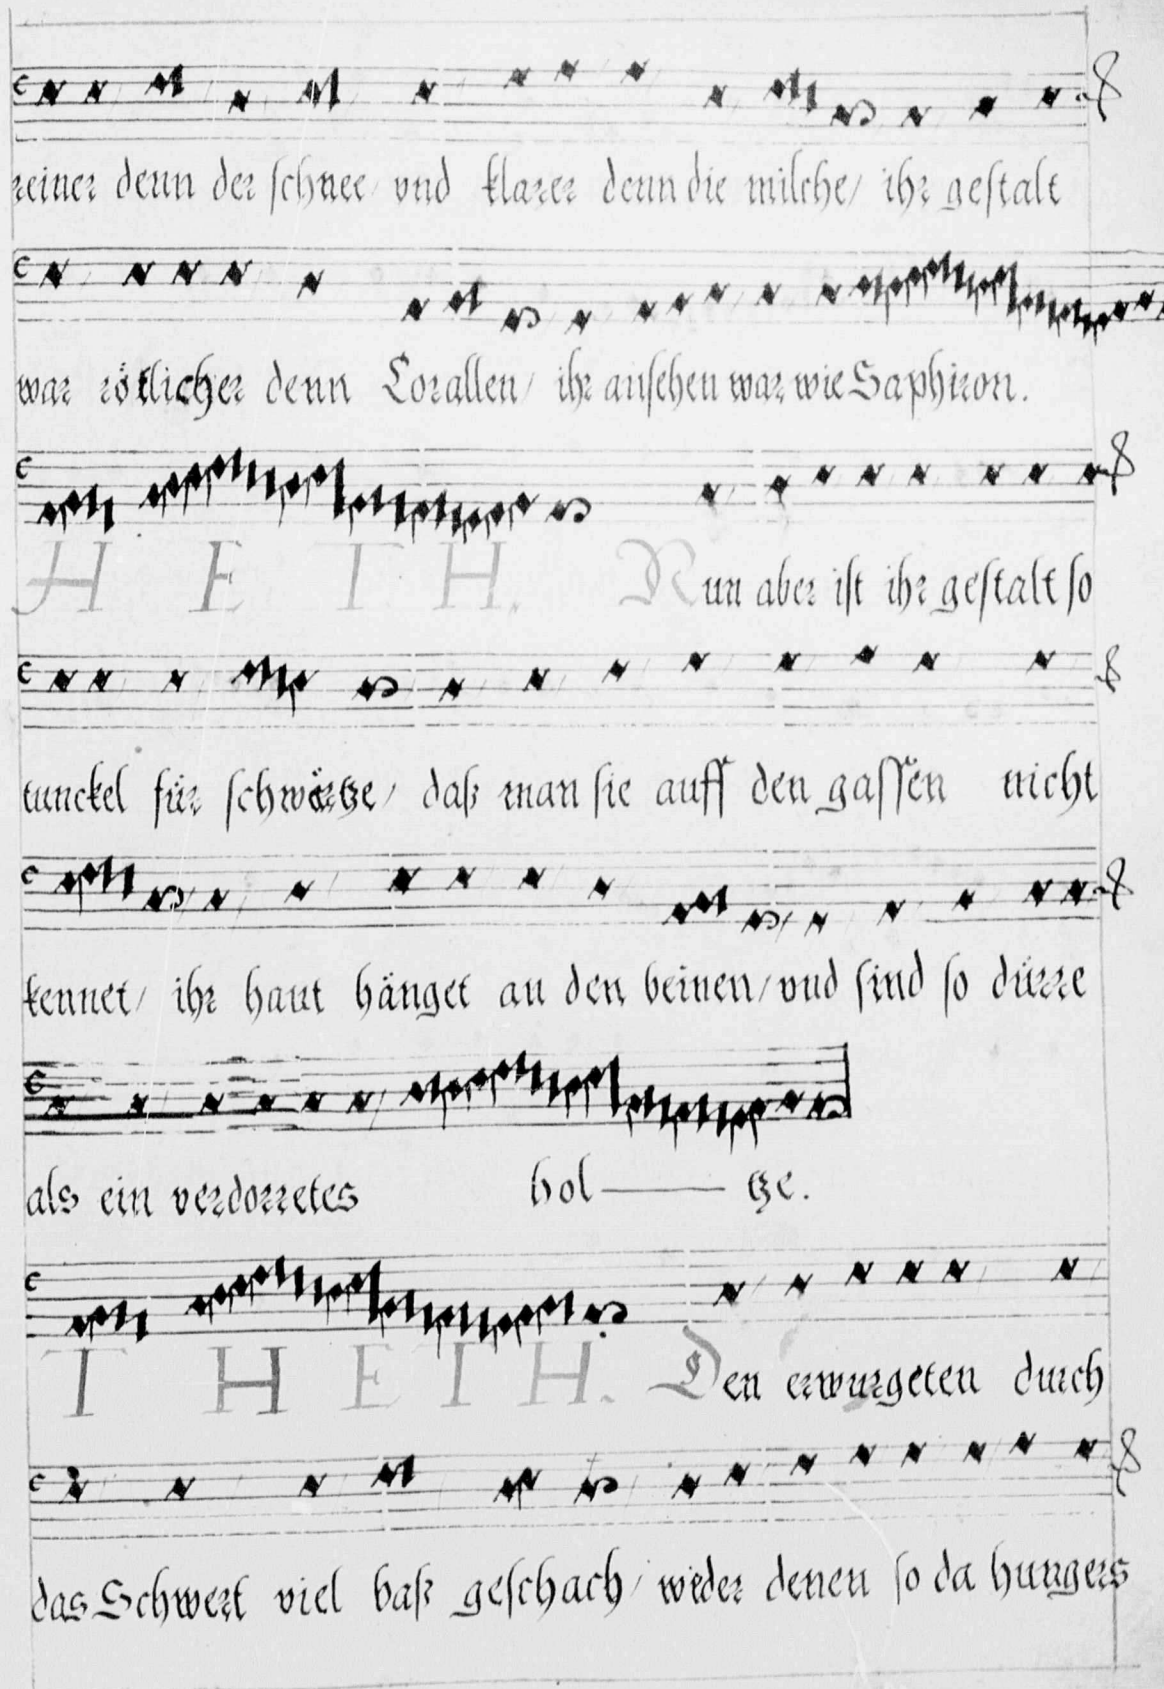 reiner denn der schnee / vnd klarer denn die milche / ihr gestalt
war rötlicher denn Corallen / ihr ansehen war wie Saphiron.
HETH. Nun aber ist ihr gestalt so
tunckel für schwärtze / daß man sie auff den gassen nicht
kennet / ihr haut hänget an den beinen / vnd sind so dürre
als ein verdorretes hol — tze.
THETH. Den erwurgeten durch
das Schwert viel baß geschach / weder denen so da hungers